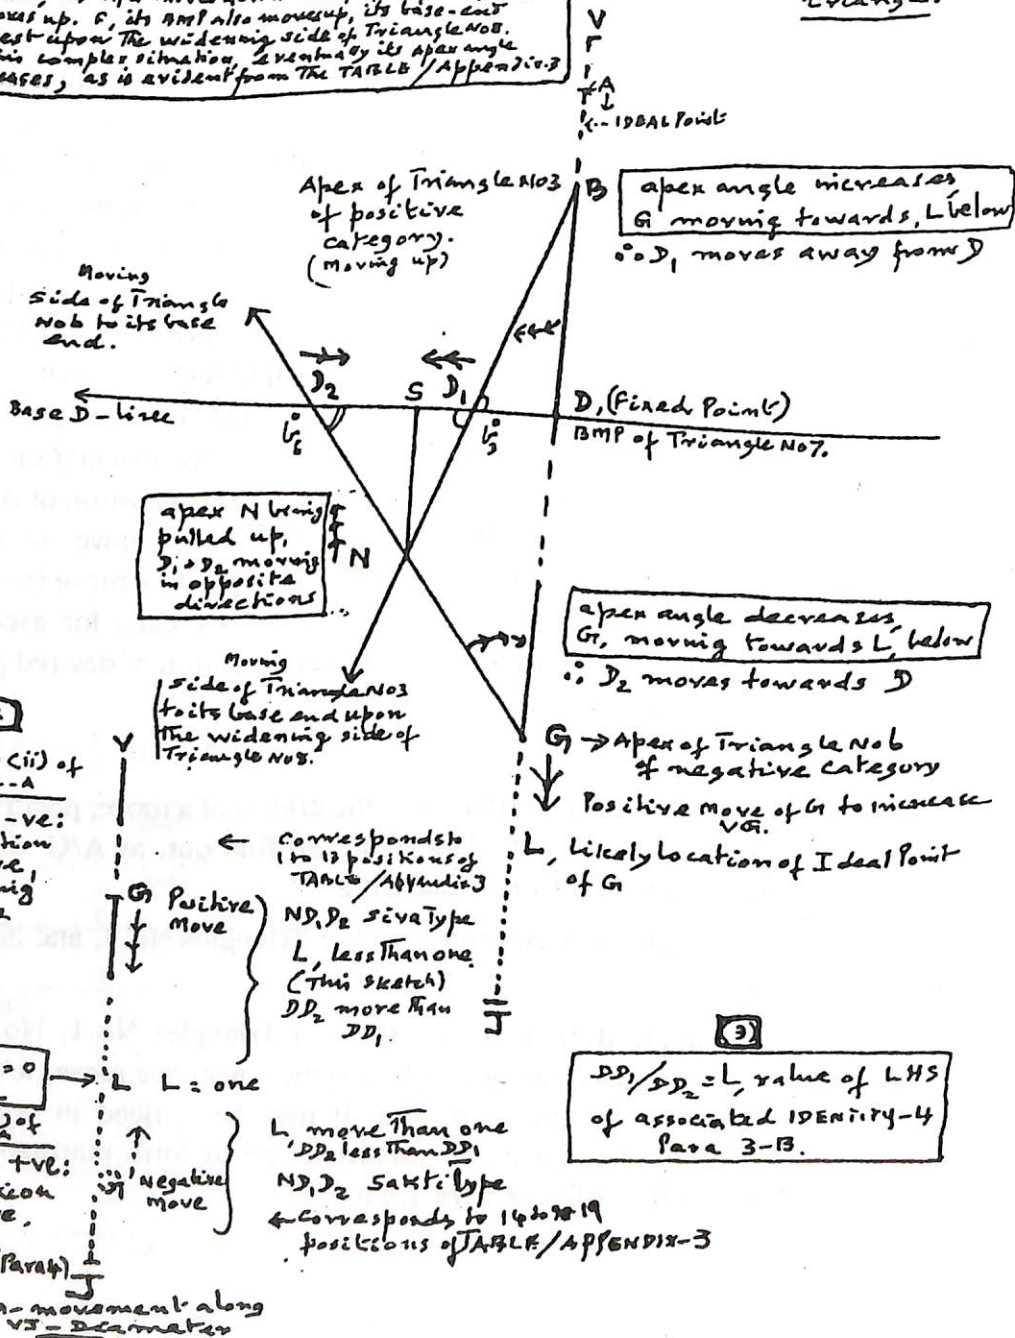 up. G, its AMP also moves up, its base-end
est upon The widening side of Triangle No8.
his complex situation, eventually its apex angle
eases, as is evident from The TABLE/Appendix-3
V
A
IDEAL Point
Apex of Triangle No3
of positive
category.
(moving up)
B
apex angle increases,
G moving towards, L below
∴ D1 moves away from D
Moving
side of Triangle
No6 to its base
end.
D2
S
D1
Base D-line
D, (Fixed Point)
BMP of Triangle No7.
apex N being
pulled up,
D1 & D2 moving
in opposite
directions
N
apex angle decreases,
G, moving towards L, below
∴ D2 moves towards D
Moving
side of Triangle No3
to its base end upon
The widening side of
Triangle No8.
G → Apex of Triangle No6
of negative category
Positive move of G to increase
VG.
L, Likely location of Ideal Point
of G
(ii) of
--A
-ve:
tion
ve,
V
G Positive
move
← corresponds to
1 to 13 positions of
TABLE/Appendix-3
ND1D2 Siva Type
L, less Than one
(This sketch)
DD2 more Than
DD1
J
(3)
DD1/DD2 = L, value of LHS
of associated IDENTITY-4
Para 3-B.
=0 → L L = one
of
+ve:
Negative
move
L, more Than one
DD2 less Than DD1
ND1D2 Sakti Type
← corresponds to 14 to 19
positions of TABLE/APPENDIX-3
(Para 4)
J
movement along
VJ - Diameter